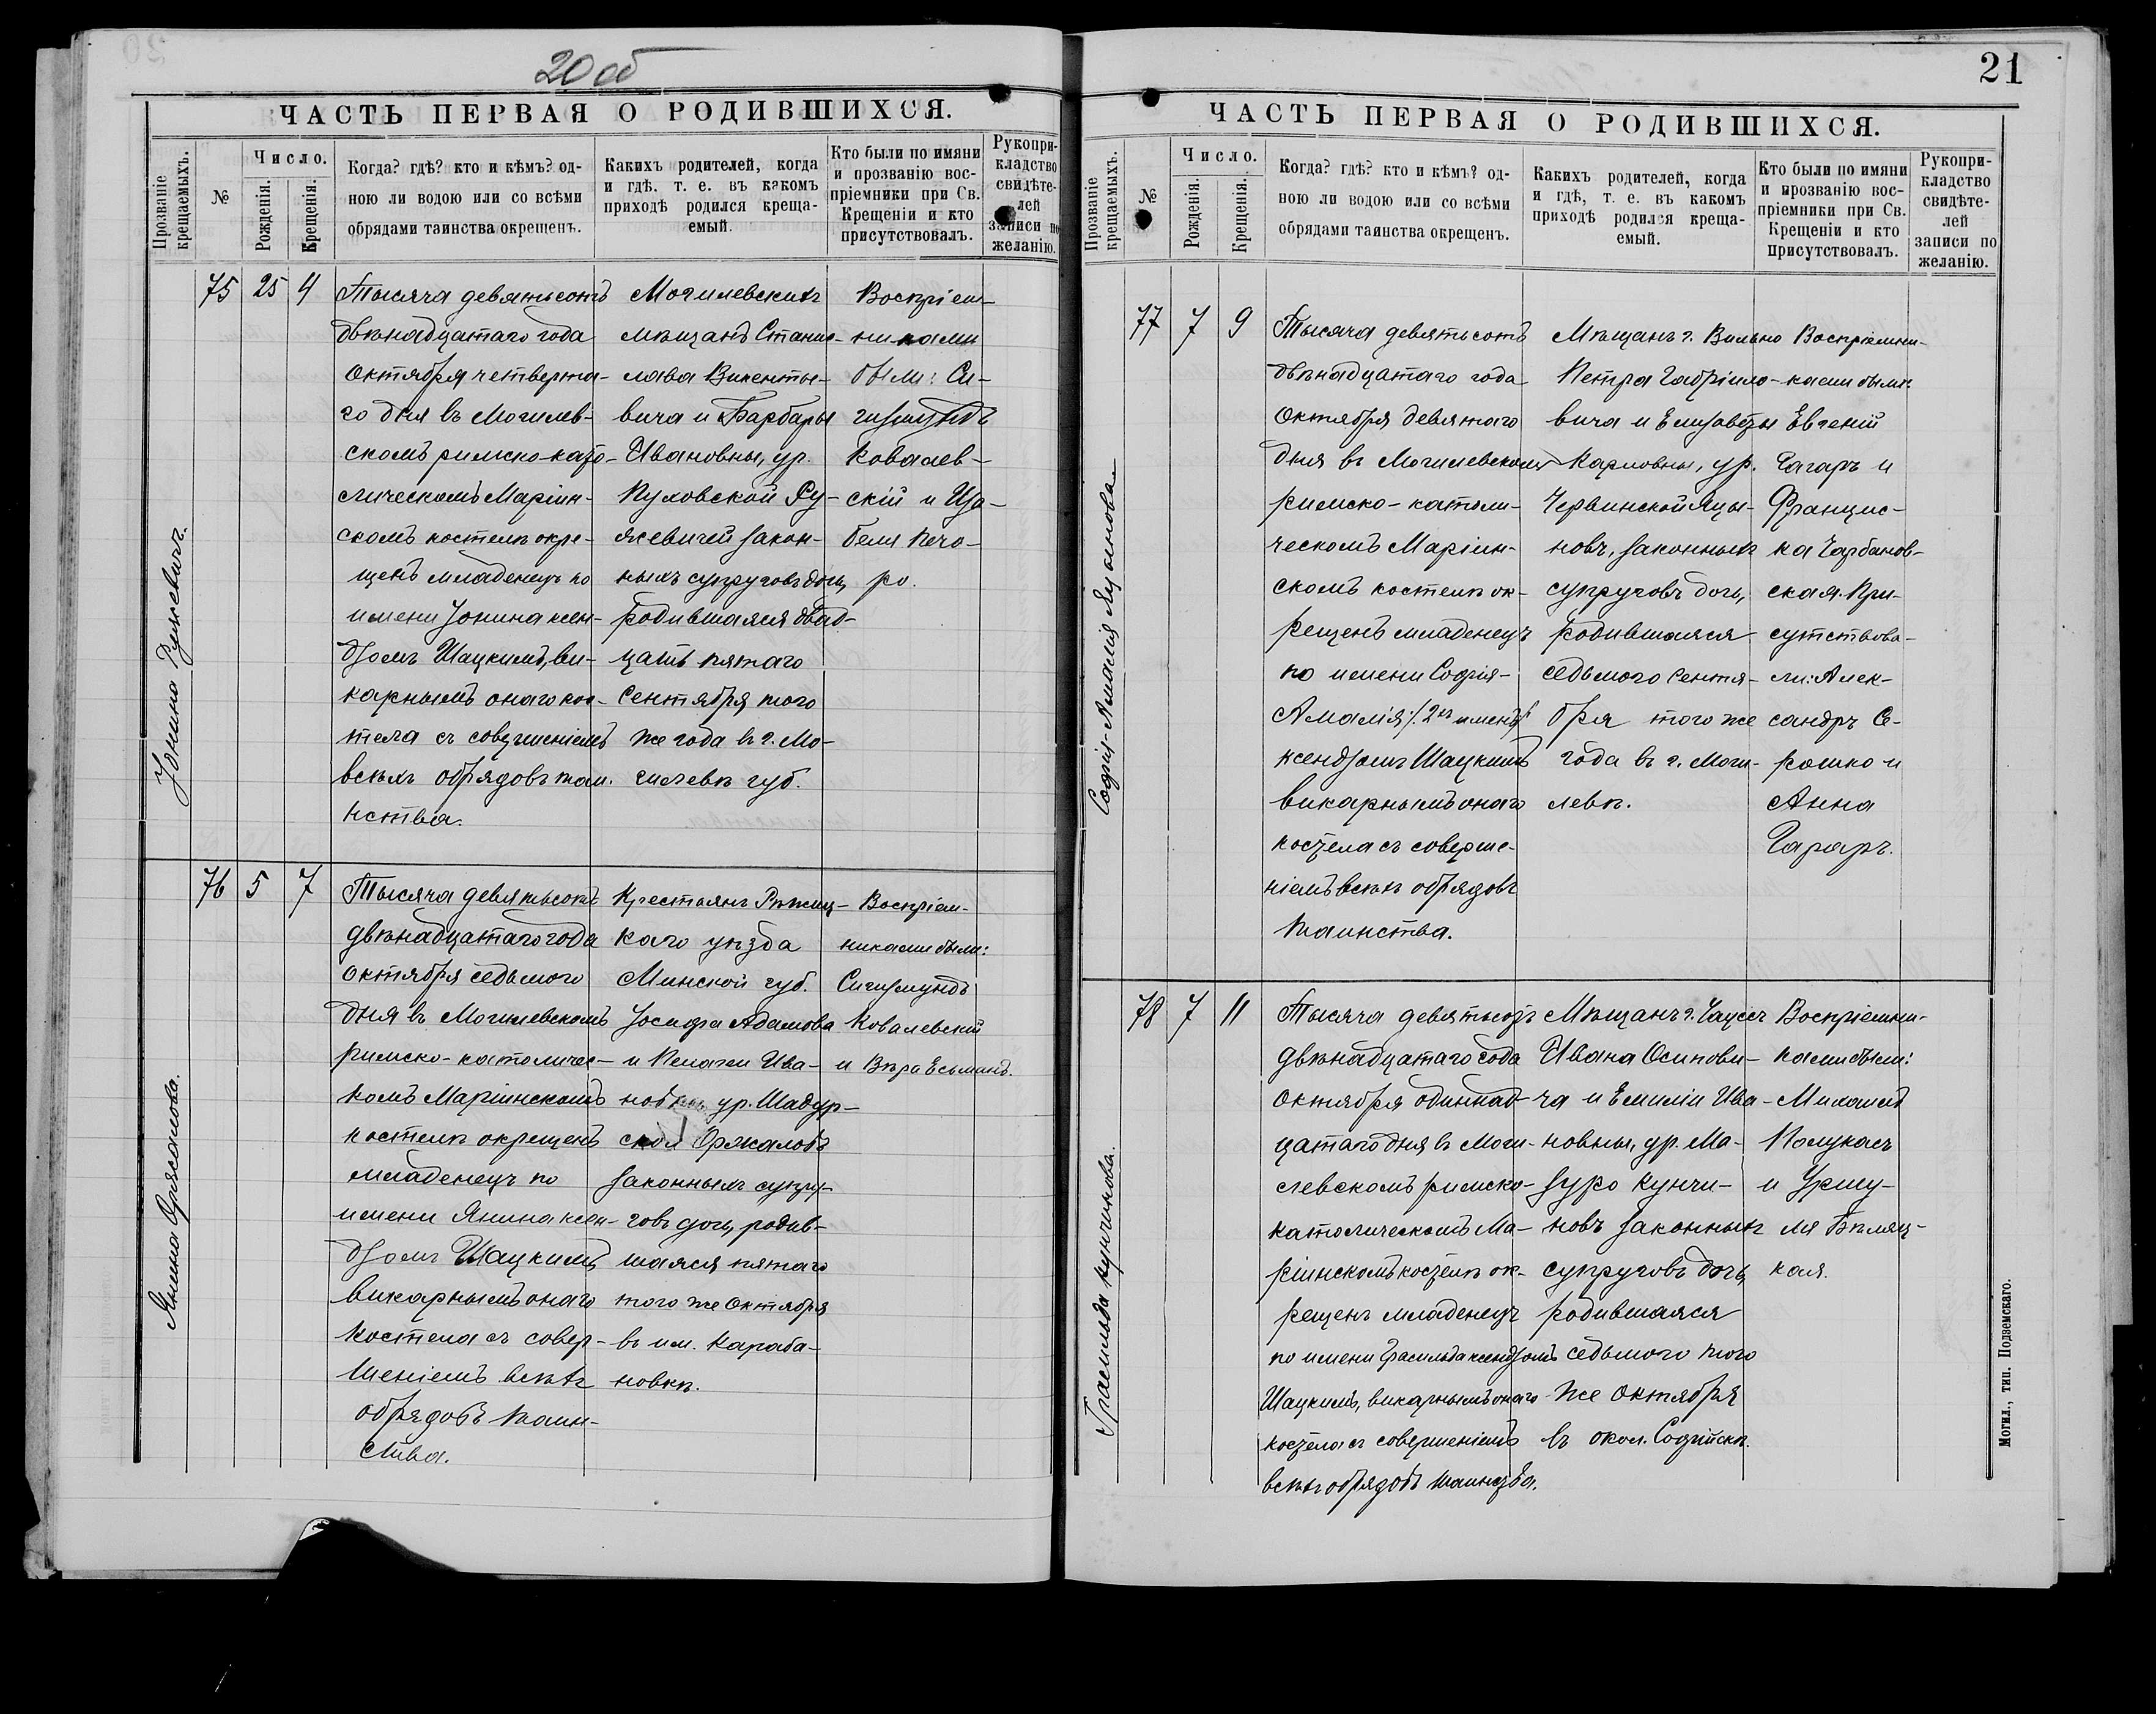 20 об
ЧАСТЬ ПЕРВАЯ О РОДИВШИХСЯ.
Прозваніе крещаемыхъ.
№
Число.
Рожденія.
Крещенія.
Когда? гдѣ? кто и кѣмъ? од-
ною ли водою или со всѣми
обрядами таинства окрещенъ.
Какихъ родителей, когда
и гдѣ, т. е. въ какомъ
приходѣ родился креща-
емый.
Кто были по имяни
и прозванію вос-
пріемники при Св.
Крещеніи и кто
присутствовалъ.
Рукопри-
кладство
свидѣте-
лей
записи по
желанію.
Іонина Ружевичъ.
75
25
4
Тысяча девятьсотъ
двѣнадцатаго года
Октября четверта-
го дня въ Могилев-
скомъ римско-като-
лическомъ Маріин-
скомъ костелѣ окре-
щенъ младенецъ по
имени Іонина ксен-
дзомъ Шацкимъ, ви-
карнымъ онаго кос-
тела съ совершеніемъ
всѣхъ обрядовъ таи-
нства.
Могилевскихъ
мѣщанъ Станис-
лава Викентье-
вича и Барбары
Ивановны, ур.
Пуховской Ру-
жевичей закон-
ныхъ супруговъ дочь,
родившаяся двад-
цать пятаго
Сентября того
же года въ г. Мо-
гилевѣ губ.
Воспріем-
никами
были: Си-
гизмундъ
Ковалев-
скій и Иза-
беля Печо-
ро.
Янина Оржалова.
76
5
7
Тысяча девятьсотъ
двѣнадцатаго года
Октября седьмого
дня въ Могилевскомъ
римско-католичес-
комъ Маріинскомъ
костелѣ окрещенъ
младенецъ по
имени Янина ксен-
дзомъ Шацкимъ
викарнымъ онаго
костела съ совер-
шеніемъ всѣхъ
обрядовъ таин-
ства.
Крестьянъ Рѣжиц-
каго уѣзда
Минской губ.
Іосифа Адамова
и Пелагеи Ива-
новны ур. Шадур-
ской Оржаловъ
законныхъ супру-
говъ дочь, родив-
шаяся пятаго
того же Октября
въ им. Караба-
новкѣ.
Воспріем-
никами были:
Сигизмундъ
Ковалевскій
и Вѣра Есьманъ.
21
ЧАСТЬ ПЕРВАЯ О РОДИВШИХСЯ.
Прозваніе крещаемыхъ.
№
Число.
Рожденія.
Крещенія.
Когда? гдѣ? кто и кѣмъ? од-
ною ли водою или со всѣми
обрядами таинства окрещенъ.
Какихъ родителей, когда
и гдѣ, т. е. въ какомъ
приходѣ родился креща-
емый.
Кто были по имяни
и прозванію вос-
пріемники при Св.
Крещеніи и кто
присутствовалъ.
Рукопри-
кладство
свидѣте-
лей
записи по
желанію.
Софія-Амалія
77
7
9
Тысяча девятьсотъ
двѣнадцатаго года
Октября девятаго
дня въ Могилевскомъ
римско-католи-
ческомъ Маріин-
скомъ костелѣ ок-
рещенъ младенецъ
по имени Софія-
Амалія /:2хъ именъ:/
ксендзомъ Шацкимъ
викарнымъ онаго
костела съ соверше-
ніемъ всѣхъ обрядовъ
таинства.
Мѣщанъ г. Вильно
Петра Габріило-
вича и Елизаветы
Карловны, ур.
Червинской Яцы-
новъ, законныхъ
супруговъ дочь,
родившаяся
седьмого Сентя-
бря того же
года въ г. Моги-
левѣ.
Воспріемни-
ками были:
Евгеній
Гагаръ и
Францис-
ка Чарбанов-
ская. При-
сутствова-
ли: Алек-
сандръ Се-
рошко и
Анна
Гагаръ.
Грасильда Кунчинова.
78
7
11
Тысяча девятьсотъ
двѣнадцатаго года
Октября одиннад-
цатаго дня въ Моги-
левскомъ римско-
католическомъ Ма-
ріинскомъ костелѣ ок-
рещенъ младенецъ
по имени Грасильда ксендзомъ
Шацкимъ, викарнымъ онаго
костела съ совершеніемъ
всѣхъ обрядовъ таинства.
Мѣщанъ г. Чаусъ
Ивана Осипови-
ча и Емиліи Ива-
новны, ур. Ма-
зуро Кунчи-
новъ законныхъ
супруговъ дочь,
родившаяся
седьмого того
же Октября
въ окол. Софійскѣ.
Воспріемни-
ками были:
Михаилъ
Полукасъ
и Уршу-
ля Бѣляц-
кая.
Могил., тип. Подземскаго.